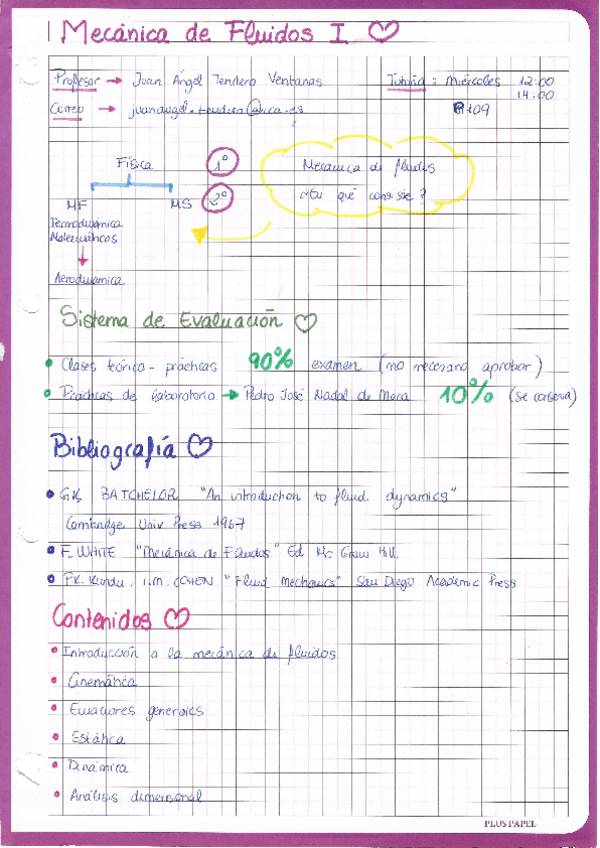 Mecánica de Fluidos I
Profesor → Juan Ángel Tendero Ventanas
Tutoría : Miércoles 12:00
14:00
Correo → juanangel.tendero@uca.es
109
Física 1º
MF MS 2º
Mecánica de fluidos
¿En qué consiste?
Termodinámica
Matemáticas
Aerodinámica
Sistema de Evaluación
• Clases teórico-prácticas 90% examen (no necesario aprobar)
• Prácticas de laboratorio → Pedro José Nadal de Mora 10% (se conserva)
Bibliografía
• G.K. BATCHELOR "An introduction to fluid dynamics"
Cambridge Univ Press 1967
• F. WHITE "Mecánica de Fluidos" Ed. Mc Graw Hill
• P.K. Kundu, I.M. COHEN "Fluid Mechanics" San Diego Academic Press
Contenidos
• Introducción a la mecánica de fluidos
• Cinemática
• Ecuaciones generales
• Estática
• Dinámica
• Análisis dimensional
PLUS PAPEL